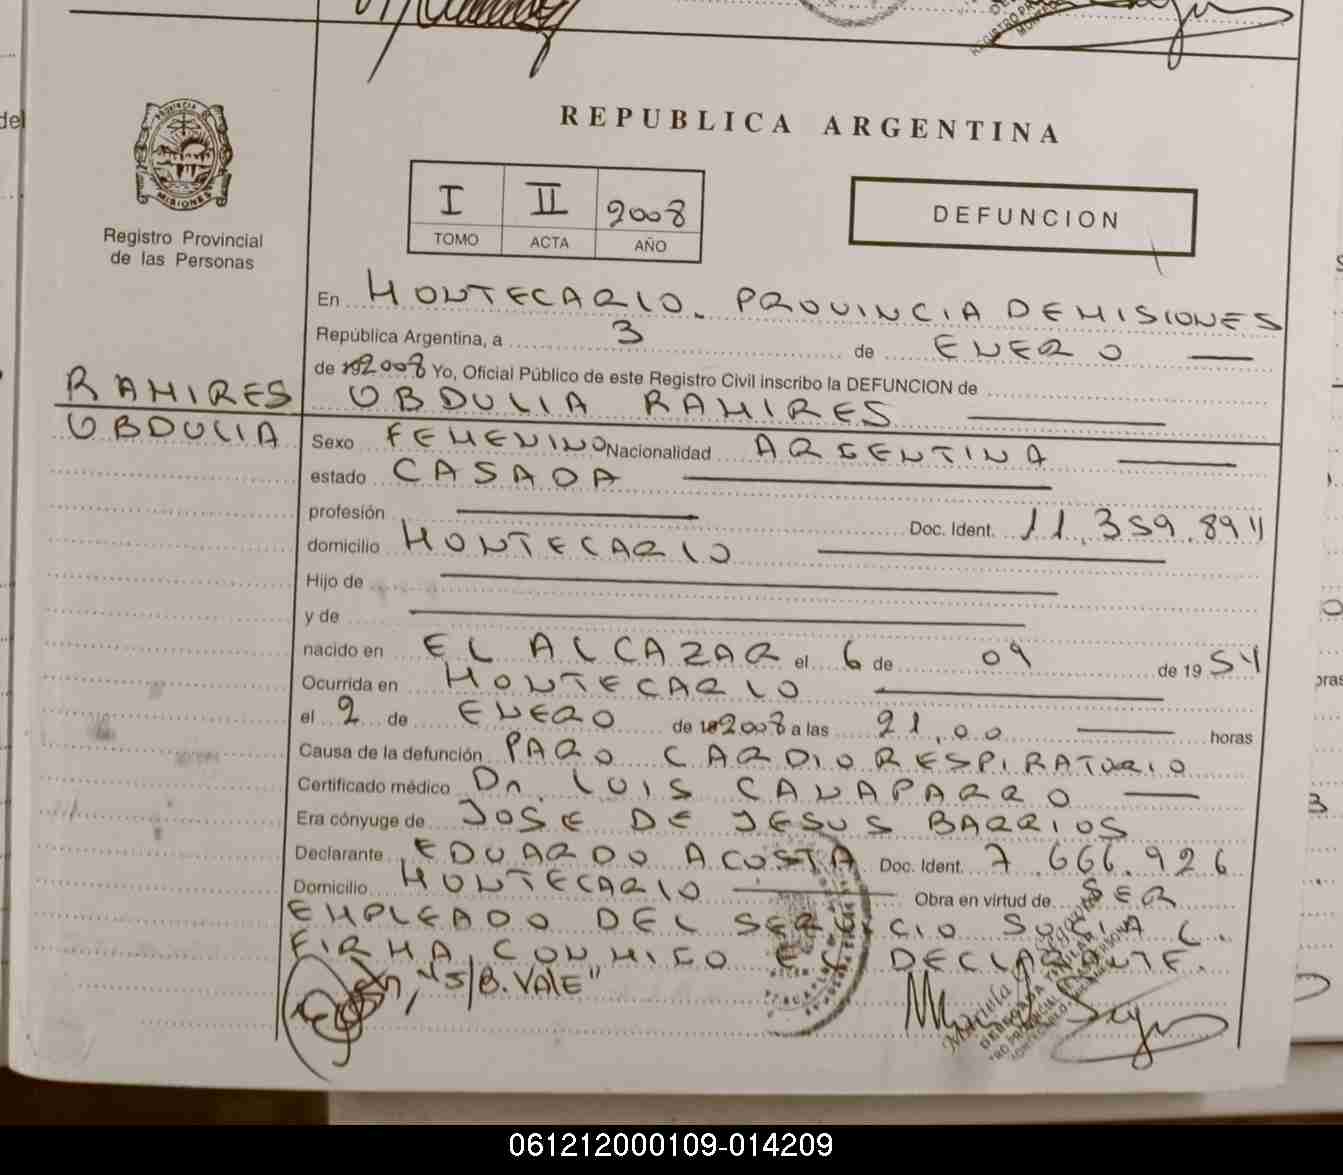 REPUBLICA ARGENTINA
PROVINCIA
MISIONES
Registro Provincial
de las Personas
I II 2008
TOMO ACTA AÑO
DEFUNCION
En MONTECARLO. PROVINCIA DE MISIONES
República Argentina, a 3 de ENERO
de 2008 Yo, Oficial Público de este Registro Civil inscribo la DEFUNCION de
RAMIRES
OBDULIA RAMIRES
OBDULIA
Sexo FEMENINO Nacionalidad ARGENTINA
estado CASADA
profesión Doc. Ident. 11.359.894
domicilio MONTECARLO
Hijo de
y de
nacido en EL ALCAZAR el 6 de 09 de 1954
Ocurrida en MONTECARLO
el 2 de ENERO de 2008 a las 21,00 horas
Causa de la defunción PARO CARDIO RESPIRATORIO
Certificado médico Dr. LUIS CANAPARRO
Era cónyuge de JOSE DE JESUS BARRIOS
Declarante EDUARDO ACOSTA Doc. Ident. 7.666.926
Domicilio MONTECARLO Obra en virtud de SER
EMPLEADO DEL SERVICIO SOCIAL.
FIRMA CONMIGO EL DECLARANTE.
"S/B. VALE"
061212000109-014209